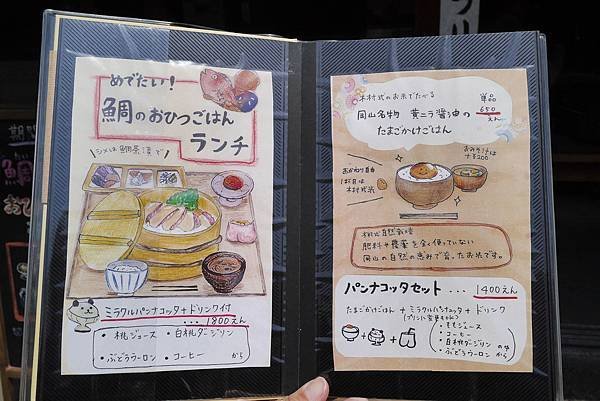 めでたい!
鯛のおひつごはん
ランチ
シメは鯛茶漬で
ミラクルパンナコッタ+ドリンク付
・・・1800えん
・桃ジュース ・白桃ダージリン
・ぶどうウーロン ・コーヒー から
木村式のお米でたべる
岡山名物 黄ニラ醤油の
たまごかけごはん
単品
650
えん
おみそ汁は
+200
おかわり自由
お米は
木村式米
木村式自然栽培
肥料や農薬を全く使っていない
岡山の自然の恵みで育ったお米です。
パンナコッタセット・・・1400えん
たまごかけごはん + ミラクルパンナコッタ + ドリンク
(プリンに変更もOK)
・ももジュース
・コーヒー
・白桃ダージリン
・ぶどうウーロン
から